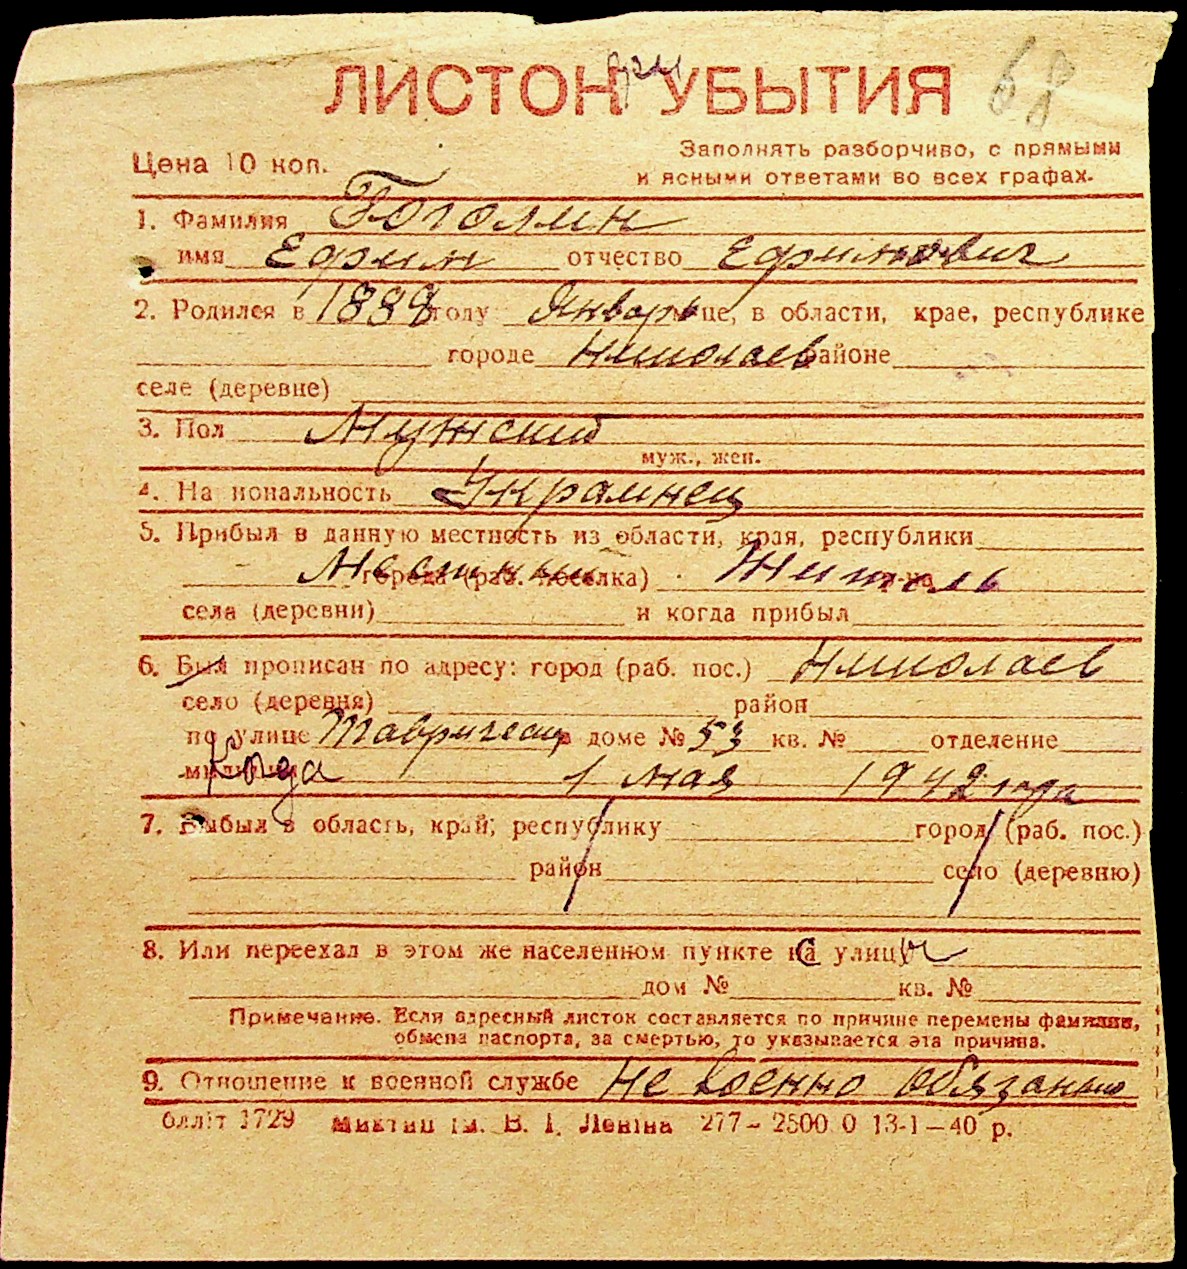 ЛИСТОК УБЫТИЯ 68
Цена 10 коп.
Заполнять разборчиво, с прямыми
и ясными ответами во всех графах.
1. Фамилия Гоголин
имя Ефрим отчество Ефимович
2. Родился в 1888 году Январь м-це, в области, крае, республике
городе Николаев районе
селе (деревне)
3. Пол Мужский
муж., жен.
4. На иональность Украинец
5. Прибыл в данную местность из области, края, республики
Местный города (раб. поселка) Житель
села (деревни) и когда прибыл
6. Был прописан по адресу: город (раб. пос.) Николаев
село (деревня) район
по улице Тавричес в доме № 53 кв. № отделение
милиции Когда 1 мая 1942 года
7. Выбыл в область, край, республику город (раб. пос.)
район село (деревню)
8. Или переехал в этом же населенном пункте на улицу
дом № кв. №
Примечание. Если адресный листок составляется по причине перемены фамилии,
обмена паспорта, за смертью, то указывается эта причина.
9. Отношение к военной службе Не военно обязаный
блліт 1729 Миктип ім. В. І. Леніна 277–2500 0 13-1–40 р.